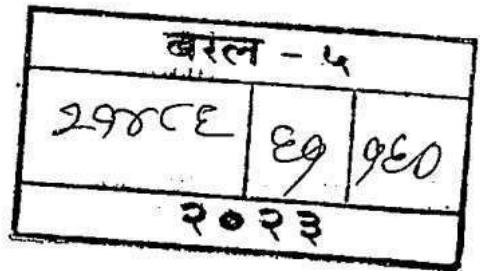 बरल - ५
२१४८६ ६१ १६०
२०२३